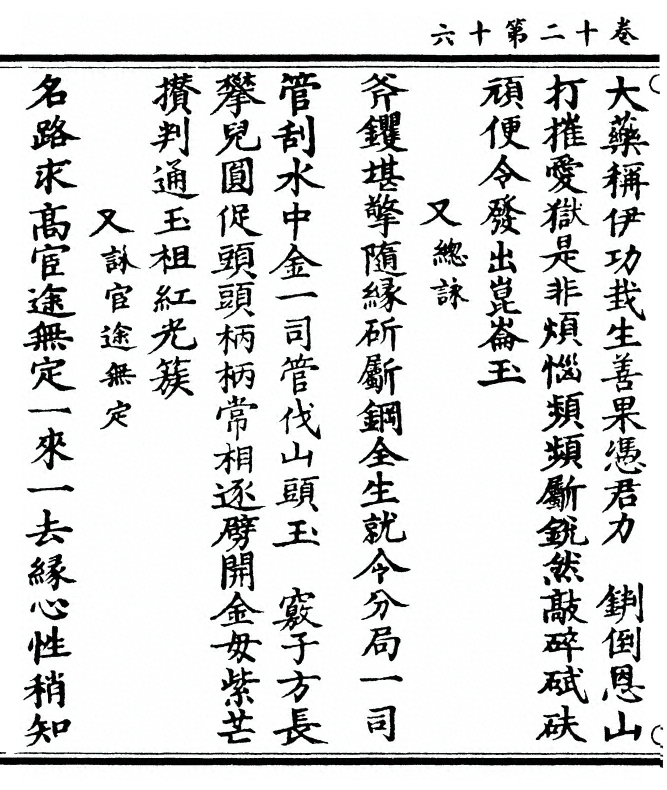 卷十二第十六
大藥稱伊功栽生善果憑君力　倒恩山
打摧愛獄是非煩惱頻頻斸銳然敲碎碔砆
頑便令發出崑崙玉
又總詠
斧钁堪擎隨緣斫斸鋼全生就令分局一司
管刮水中金一司管伐山頭玉　竅子方長
攀兒圓促頭頭柄柄常相逐劈開金母紫芒
攢判通玉祖紅光簇
又詠官途無定
名路求高宦途無定一來一去緣心性稍知